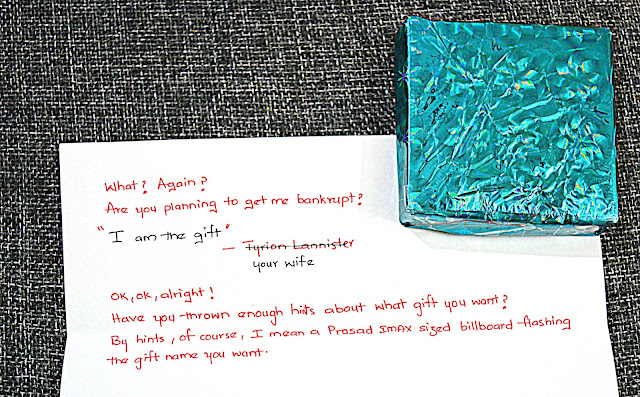 What? Again?
Are you planning to get me bankrupt?
"I am the gift"
— Tyrion Lannister
your wife
OK, OK, alright!
Have you thrown enough hints about what gift you want?
By hints, of course, I mean a Prasad IMAX sized billboard flashing
the gift name you want.